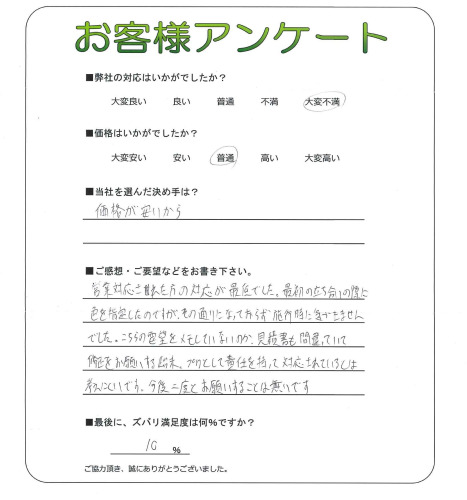 お客様アンケート
■弊社の対応はいかがでしたか？
大変良い 良い 普通 不満 大変不満
■価格はいかがでしたか？
大変安い 安い 普通 高い 大変高い
■当社を選んだ決め手は？
価格が安いから
■ご感想・ご要望などをお書き下さい。
営業対応された方の対応が最悪でした。最初の立ち合いの際に
色を指定したのですが、その通りになっておらず施行時に気づきません
でした。こちらの要望をメモしていないのか、見積書も間違っていて
修正をお願いする始末、プロとして責任を持って対応されているとは
考えにくいです。今後二度とお願いすることは無いです
■最後に、ズバリ満足度は何％ですか？
10 %
ご協力頂き、誠にありがとうございました。